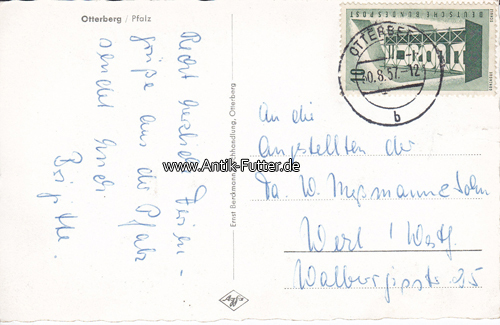 Otterberg / Pfalz
Recht herzliche Ferien-
grüße aus der Pfalz
sendet Euch
Brigitte.
Ernst Berckmann, Buchhandlung, Otterberg
Agfa
DEUTSCHE BUNDESPOST
OTTERBERG
10.8.57.-12
b
An die
Angestellten der
Fa. W. & Sohn
Werl / Westf.
Walburgisstr. 25
www.Antik-Futter.de